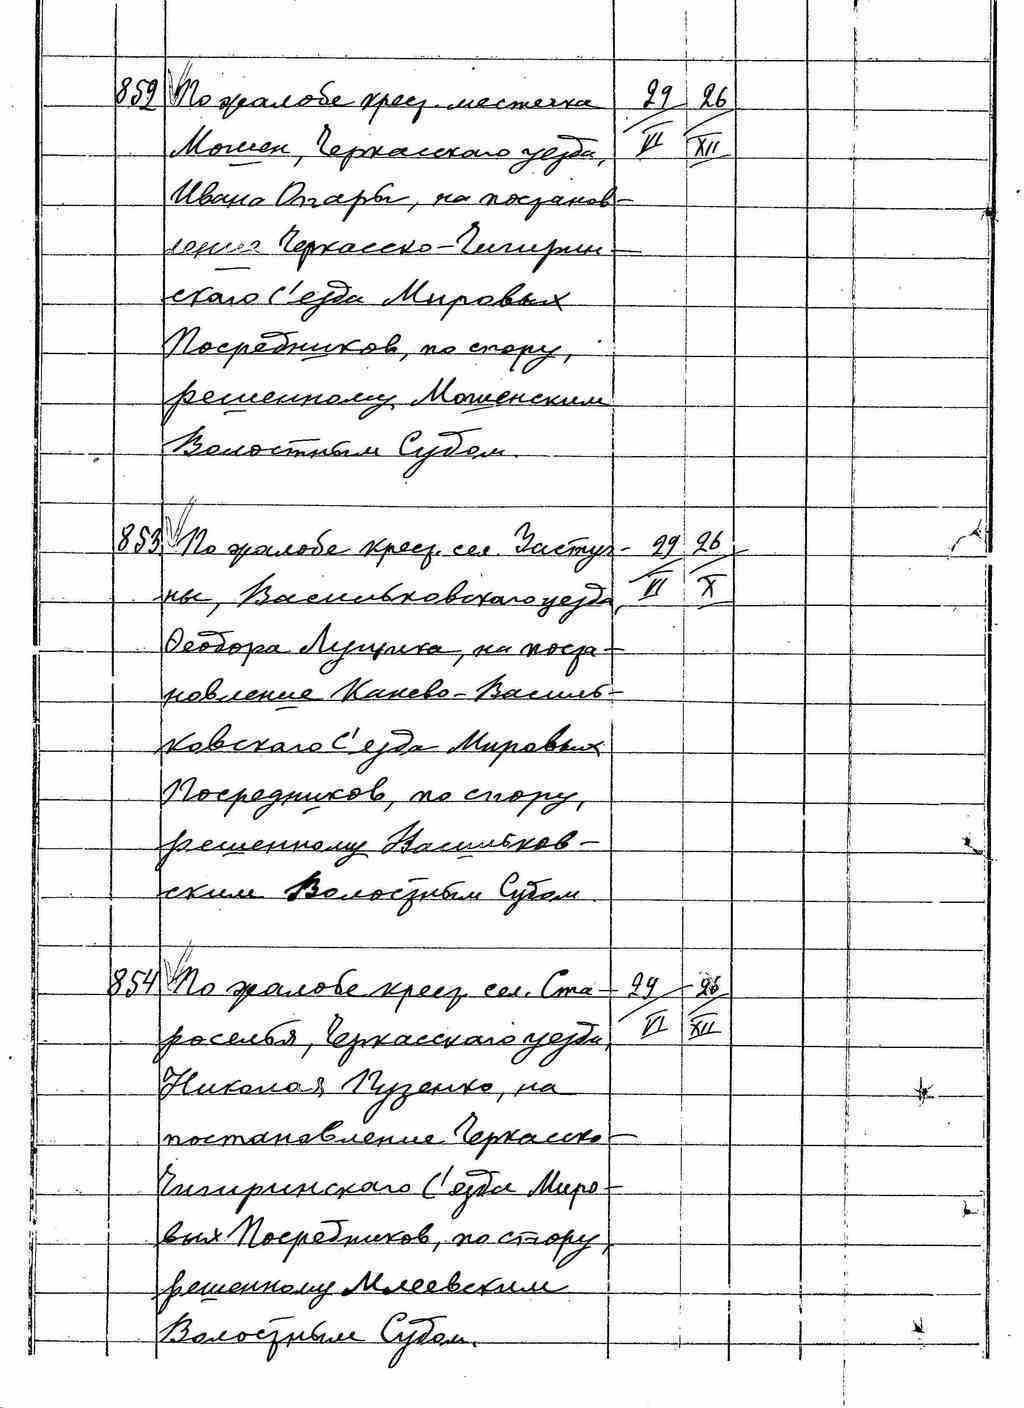 852 По жалобе крест. местечка 29 26
Мошен, Черкасскаго уезда, VI XII
Ивана Огарь, на постанов-
ления Черкасско-Чигирин-
скаго С'езда Мировых
Посредников, по спору,
решенному Мошенским
Волостным Судом.
853 По жалобе крест. сел. Застуг- 29 26
ны, Васильковскаго уезда, VI X
Феодора Лущика, на поста-
новление Канево-Василь-
ковскаго С'езда Мировых
Посредников, по спору,
решенному Васильков-
ским Волостным Судом.
854 По жалобе крест. сел. Ста- 29 26
роселья, Черкасскаго уезда, VI XII
Николая Пузенко, на
постановление Черкасско-
Чигиринскаго С'езда Миро-
вых Посредников, по спору,
решенному Млеевским
Волостным Судом.